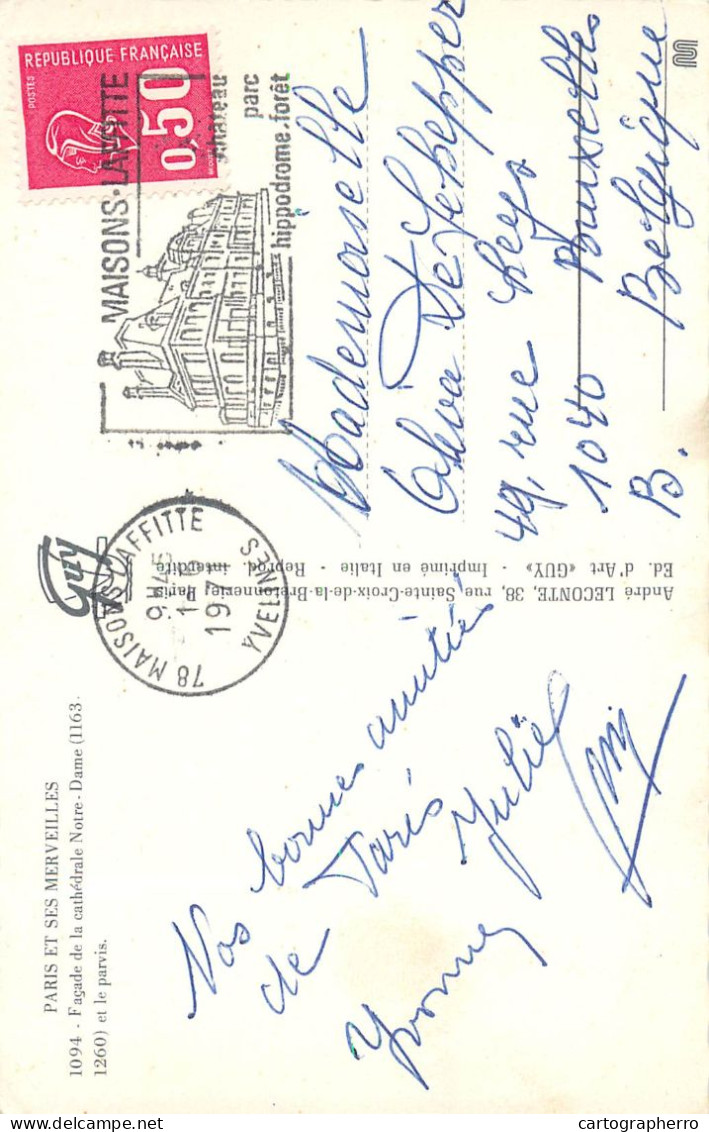 PARIS ET SES MERVEILLES
1094 - Façade de la cathédrale Notre-Dame (1163-
1260) et le parvis.
Guy
Nos bonnes amitiés
de Paris
Yvonne Juliel
André LECONTE, 38, rue Sainte-Croix-de-la-Bretonnerie, Paris
Ed. d'Art «GUY» - Imprimé en Italie - Reprod. interdite
78 MAISONS-LAFFITTE
9H45
197
YVELINES
MAISONS-LAFFITTE
château
parc
hippodrome.forêt
POSTES
REPUBLIQUE FRANÇAISE
0,50
Mademoiselle
De Schepper
49, rue Leys
1040 Bruxelles
B. Belgique
cartographerro